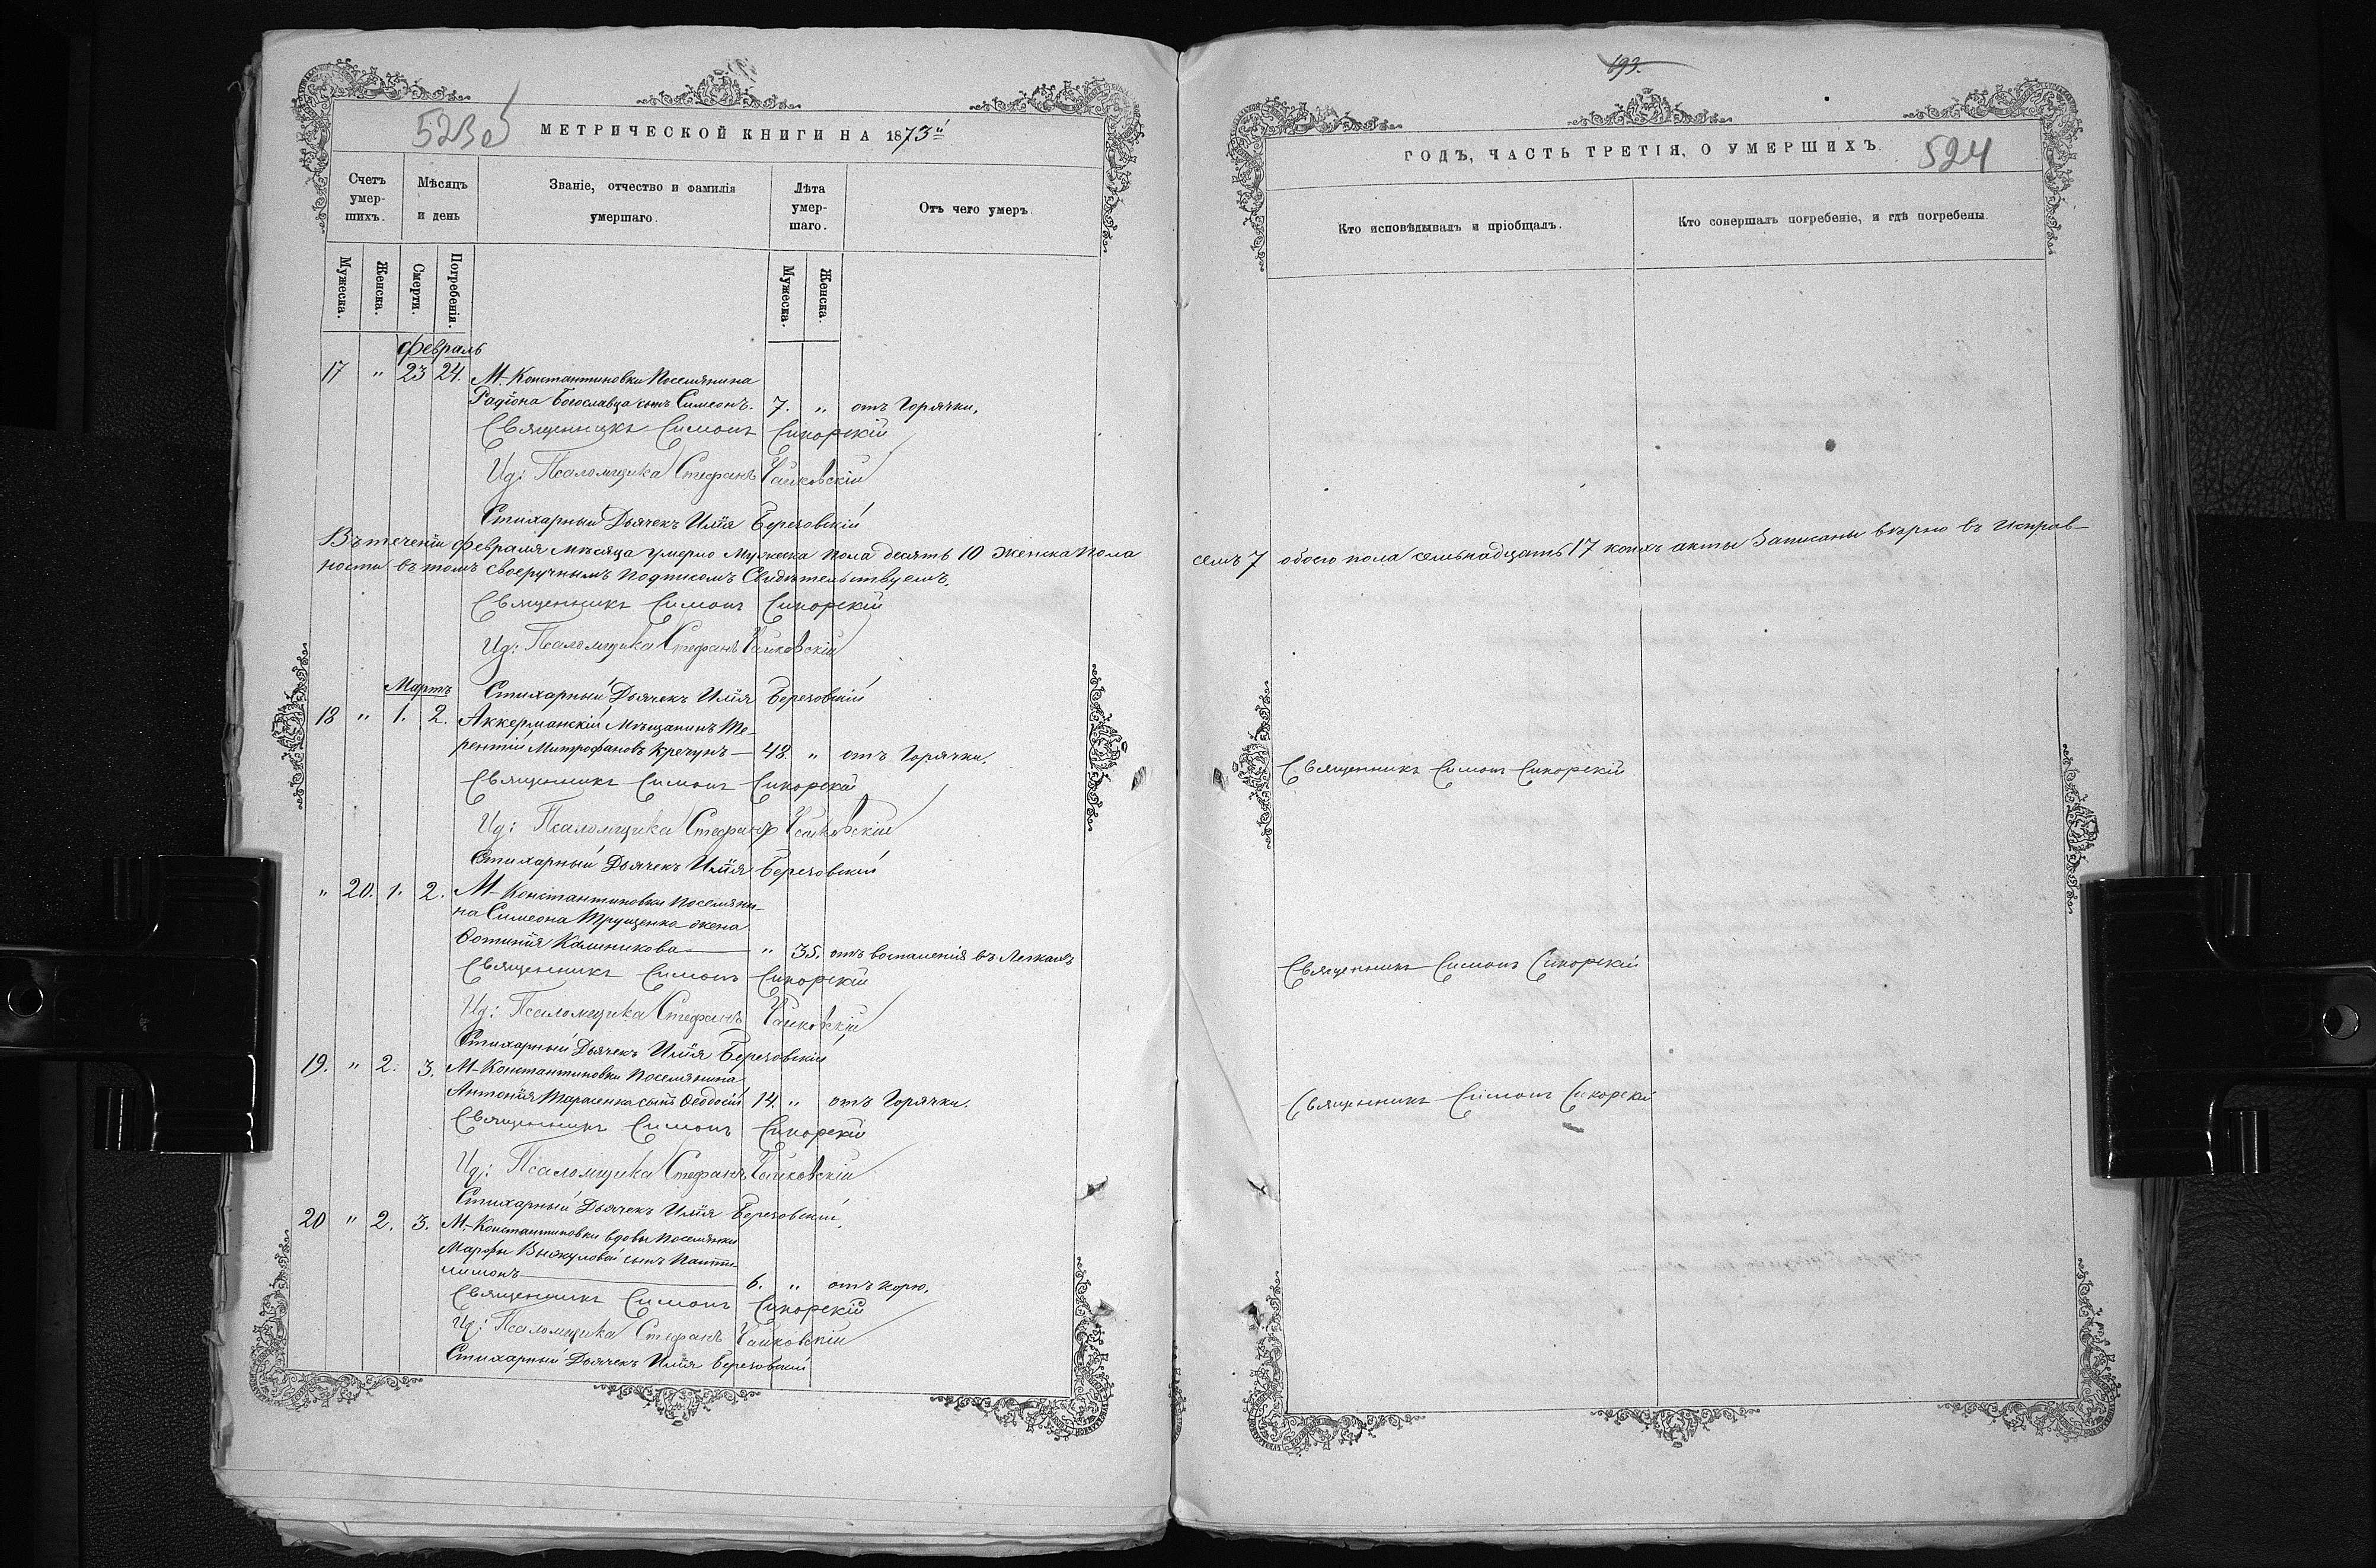 523об
МЕТРИЧЕСКОЙ КНИГИ НА 1873й
Счетъ умер-шихъ.
Мѣсяцъ и день
Званіе, отчество и фамилія умершаго.
Лѣта умер-шаго.
Отъ чего умеръ.
Мужеска.
Женска.
Смерти.
Погребенія.
Мужеска.
Женска.
Февраль
17 " 23 24. М-Константиновки Поселянина
Радіона Богославца сынъ Симеонъ. 7. " отъ Горячки.
Священникъ Симонъ Сикорскій
Ид: Псаломщика Стефанъ Чайковскій
Стихарный Дьячекъ Илія Березовскій
Въ теченіи февраля мѣсяца умерло Мужеска пола десять 10 Женска пола
ности въ томъ своеручнымъ подписомъ Свидѣтельствуемъ.
Священникъ Симонъ Сикорскій
Ид: Псаломщика Стефанъ Чайковскій
Мартъ
Стихарный Дьячекъ Илія Березовскій
18 " 1. 2. Аккерманскій Мѣщанинъ Те-
рентій Митрофановъ Кречунъ — 48. " отъ Горячки.
Священникъ Симонъ Сикорскій
Ид: Псаломщика Стефанъ Чайковскій
Стихарный Дьячекъ Илія Березовскій
" 20. 1. 2. М-Константиновки Поселяни-
на Симеона Трущенка жена
Фотинія Калиникова — " 35. отъ воспаленія въ Легкахъ
Священникъ Симонъ Сикорскій
Ид: Псаломщика Стефанъ Чайковскій
Стихарный Дьячекъ Илія Березовскій
19. " 2. 3. М-Константиновки Поселянина
Антонія Тарасенка сынъ Феодосій 14. " отъ Горячки.
Священникъ Симонъ Сикорскій
Ид: Псаломщика Стефанъ Чайковскій
Стихарный Дьячекъ Илія Березовскій
20 " 2. 3. М-Константиновки вдовы поселянки
Марфы сынъ Панти-
лимонъ — 6. " отъ Корю.
Священникъ Симонъ Сикорскій
Ид: Псаломщика Стефанъ Чайковскій
Стихарный Дьячекъ Илія Березовскій
193.
ГОДЪ, ЧАСТЬ ТРЕТІЯ, О УМЕРШИХЪ.
524
Кто исповѣдывалъ и пріобщалъ.
Кто совершалъ погребеніе, и гдѣ погребены.
семъ 7 обоего пола семьнадцать 17 коихъ акты Записаны вѣрно въ Исправ-
Священникъ Симонъ Сикорскій
Священникъ Симонъ Сикорскій
Священникъ Симонъ Сикорскій